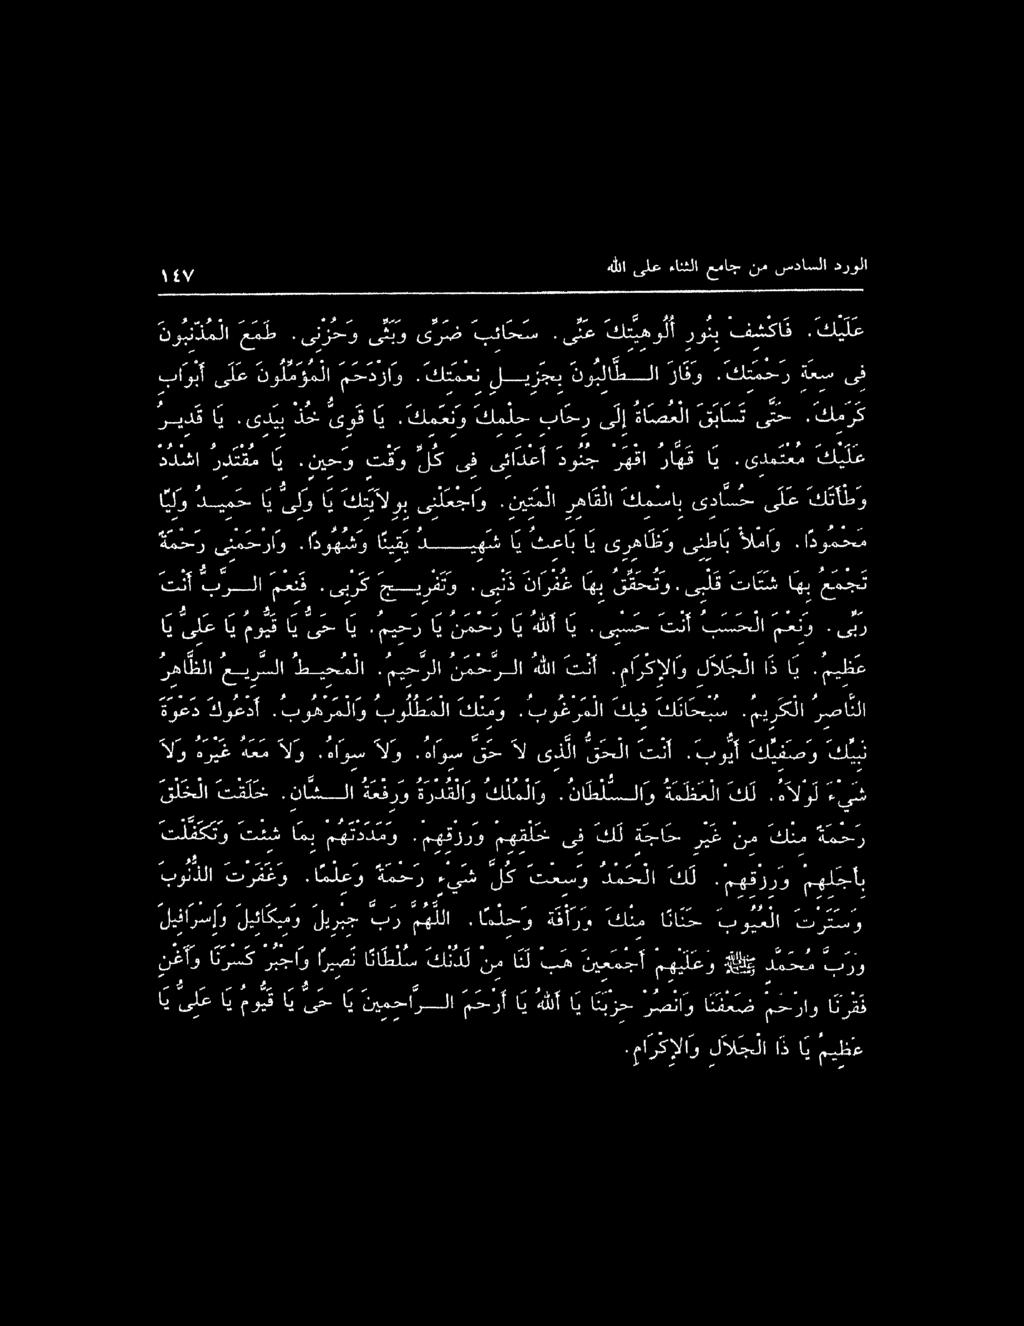 الورد السادس من جامع الثناء على الله ١٤٧
عَلَيْكَ. فَاكْشِفْ بِنُورِ أُلُوهِيَّتِكَ عَنِّى. سَحَائِبَ ضَرِّى وَبَثِّى وَحُزْنِى. طَمَعَ الْمُذْنِبُونَ
فِى سِعَةِ رَحْمَتِكَ. وَفَازَ الطَّالِبُونَ بِجَزِيلِ نِعْمَتِكَ. وَازْدَحَمَ الْمُؤَمِّلُونَ عَلَى أَبْوَابِ
كَرَمِكَ. حَتَّى تَسَابَقَ الْعُصَاةُ إِلَى رِحَابِ حِلْمِكَ وَنِعَمِكَ. يَا قَوِىُّ خُذْ بِيَدِى. يَا قَدِيرُ
عَلَيْكَ مُعْتَمَدِى. يَا قَهَّارُ اقْهَرْ جُنُودَ أَعْدَائِى فِى كُلِّ وَقْتٍ وَحِينٍ. يَا مُقْتَدِرُ اشْدُدْ
وَطْأَتَكَ عَلَى حُسَّادِى بِاسْمِكَ الْقَاهِرِ الْمَتِينِ. وَاجْعَلْنِى بِوِلاَيَتِكَ يَا وَلِىُّ يَا حَمِيدُ وَلِيًّا
مَحْمُودًا. وَامْلأْ بَاطِنِى وَظَاهِرِى يَا بَاعِثُ يَا شَهِيدُ يَقِينًا وَشُهُودًا. وَارْحَمْنِى رَحْمَةً
تَجْمَعُ بِهَا شَتَاتَ قَلْبِى. وَتُحَقِّقُ بِهَا غُفْرَانَ ذَنْبِى. وَتَفْرِيجَ كَرْبِى. فَنِعْمَ الرَّبُّ أَنْتَ
رَبِّى. وَنِعْمَ الْحَسَبُ أَنْتَ حَسْبِى. يَا اَللهُ يَا رَحْمَنُ يَا رَحِيمُ. يَا حَىُّ يَا قَيُّومُ يَا عَلِىُّ يَا
عَظِيمُ. يَا ذَا الْجَلاَلِ وَالإِكْرَامِ. أَنْتَ اللهُ الرَّحْمَنُ الرَّحِيمُ. الْمُحِيطُ السَّرِيعُ الظَّاهِرُ
النَّاصِرُ الْكَرِيمُ. سُبْحَانَكَ فِيكَ الْمَرْغُوبُ. وَمِنْكَ الْمَطْلُوبُ وَالْمَرْهُوبُ. أَدْعُوكَ دَعْوَةَ
نَبِيِّكَ وَصَفِيِّكَ أَيُّوبَ. أَنْتَ الْحَقُّ الَّذِى لاَ حَقَّ سِوَاهُ. وَلاَ سِوَاهُ. وَلاَ مَعَهُ غَيْرَهُ وَلاَ
شَىْءَ لَوْلاَهُ. لَكَ الْعَظَمَةُ وَالسُّلْطَانُ. وَالْمُلْكُ وَالْقُدْرَةُ وَرِفْعَةُ الشَّانِ. خَلَقْتَ الْخَلْقَ
رَحْمَةً مِنْكَ مِنْ غَيْرِ حَاجَةٍ لَكَ فِى خَلْقِهِمْ وَرِزْقِهِمْ. وَمَدَدْتَهُمْ بِمَا شِئْتَ وَتَكَفَّلْتَ
بِأَجَلِهِمْ وَرِزْقِهِمْ. لَكَ الْحَمْدُ وَسِعْتَ كُلَّ شَىْءٍ رَحْمَةً وَعِلْمًا. وَغَفَرْتَ الذُّنُوبَ
وَسَتَرْتَ الْعُيُوبَ حَنَانًا مِنْكَ وَرَأْفَةً وَحِلْمًا. اللَّهُمَّ رَبَّ جِبْرِيلَ وَمِيكَائِيلَ وَإِسْرَافِيلَ
وَرَبَّ مُحَمَّدٍ ﷺ وَعَلَيْهِمْ أَجْمَعِينَ هَبْ لَنَا مِنْ لَدُنْكَ سُلْطَانًا نَصِيرًا وَاجْبُرْ كَسْرَنَا وَأَغْنِ
فَقْرَنَا وارْحَمْ ضَعْفَنَا وَانْصُرْ حِزْبَنَا يَا اَللهُ يَا أَرْحَمَ الرَّاحِمِينَ يَا حَىُّ يَا قَيُّومُ يَا عَلِىُّ يَا
عَظِيمُ يَا ذَا الْجَلاَلِ وَالإِكْرَامِ.